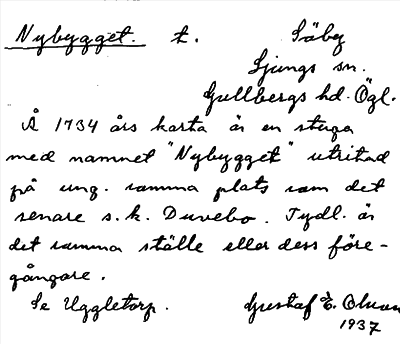 Nybygget. t. Säby
Ljungs sn.
Gullbergs hd. Ögl.
Å 1734 års karta är en stuga
med namnet "Nybygget" utritad
på ung. samma plats som det
senare s.k. Duvebo. Tydl. är
det samma ställe eller dess före-
gångare.
Se Uggletorp. Gustaf E. Olsson
1937